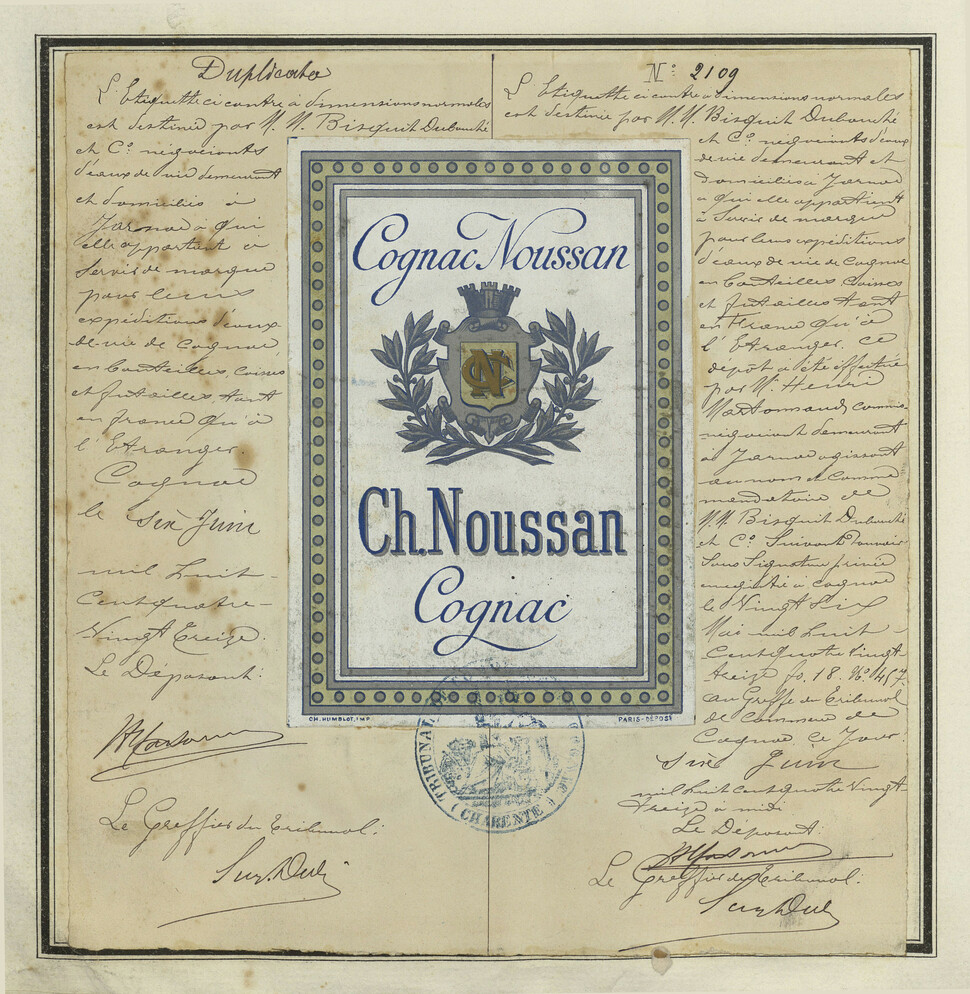 Duplicata
L'Etiquette ci contre à dimensions normales
est destinée par M. M. Bisquit Dubouché
et Cº négociants
d'eaux de vie demeurant
et domiciliés à
Jarnac à qui
elle appartient à
Servir de marque
pour leurs
expéditions d'eaux-
de-vie de Cognac
en bouteilles, caisses
et futailles tant
en france qu'à
l'Etranger.
Cognac
le six Juin
mil huit-
Cent quatre-
Vingt Treize.
Le Déposant:
Le Greffier du Tribunal:
Cognac Noussan
NC
Ch. Noussan
Cognac
CH. HUMBLOT, IMP
PARIS-DÉPOSÉ
TRIBUNAL
(CHARENTE)
Nº 2109
L'Etiquette ci contre à dimensions normales
est destinée par M. M. Bisquit Dubouché
et Cº négociants d'eaux
de vie demeurant et
domiciliés à Jarnac
à qui elle appartient
à Servir de marque
pour leurs expéditions
d'eaux de vie de Cognac
en bouteilles caisses
et futailles tant
en France qu'à
l'Etranger. Ce
dépôt a été effectué
par Mr Henri
commis
négociant demeurant
à Jarnac agissant
au nom et comme
mandataire de
M. M. Bisquit Dubouché
et Cº Suivant Pouvoir
Sous Signature privée
enregistré à Cognac
le Vingt Six
Mai mil huit
Cent quatre Vingt
treize fo. 18. Nº 457.
au Greffe du Tribunal
de Commerce de
Cognac ce Jour.
Six Juin
mil huit cent quatre Vingt
Treize à midi
Le Déposant:
Le Greffier du Tribunal: